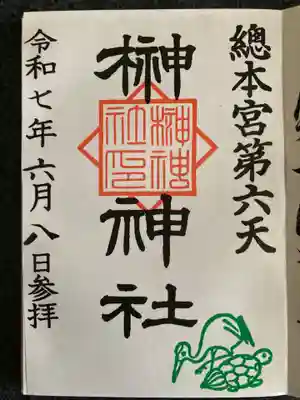 總本宮第六天
榊神社
榊神社印
令和七年六月八日参拝